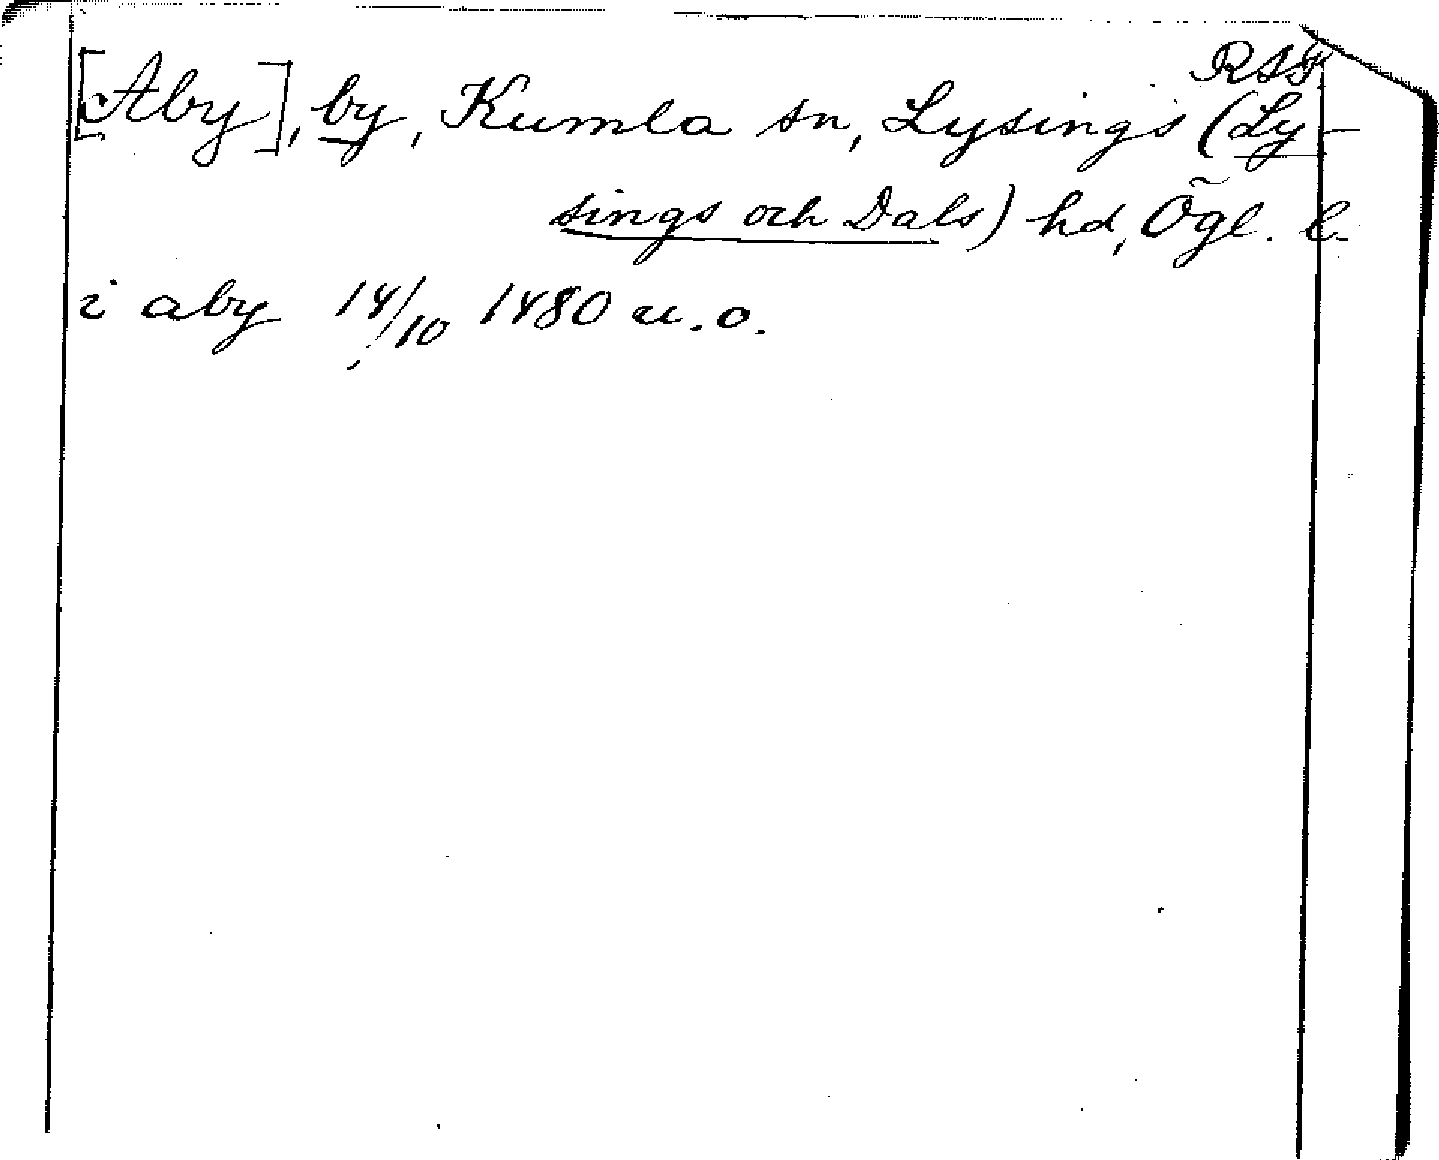 RSS.
[Aby], by, Kumla sn, Lysings (Ly-
sings och Dals) hd, Ögl. l.
i aby 14/10 1480 u.o.